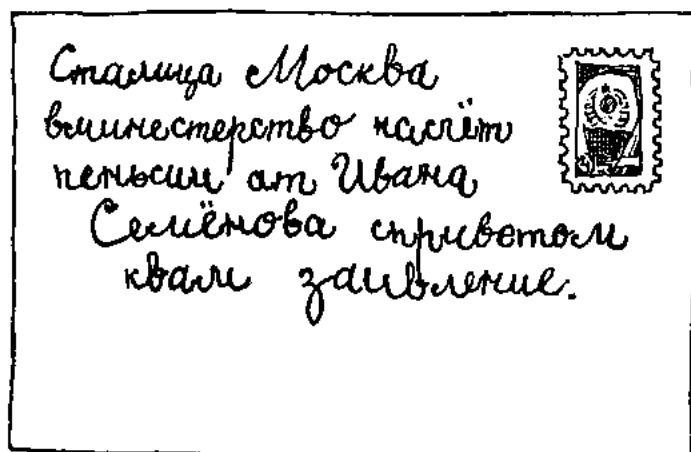 Сталица Москва
вминестерство насчёт
пеньсии от Ивана
Семёнова сприветом
квам заивление.